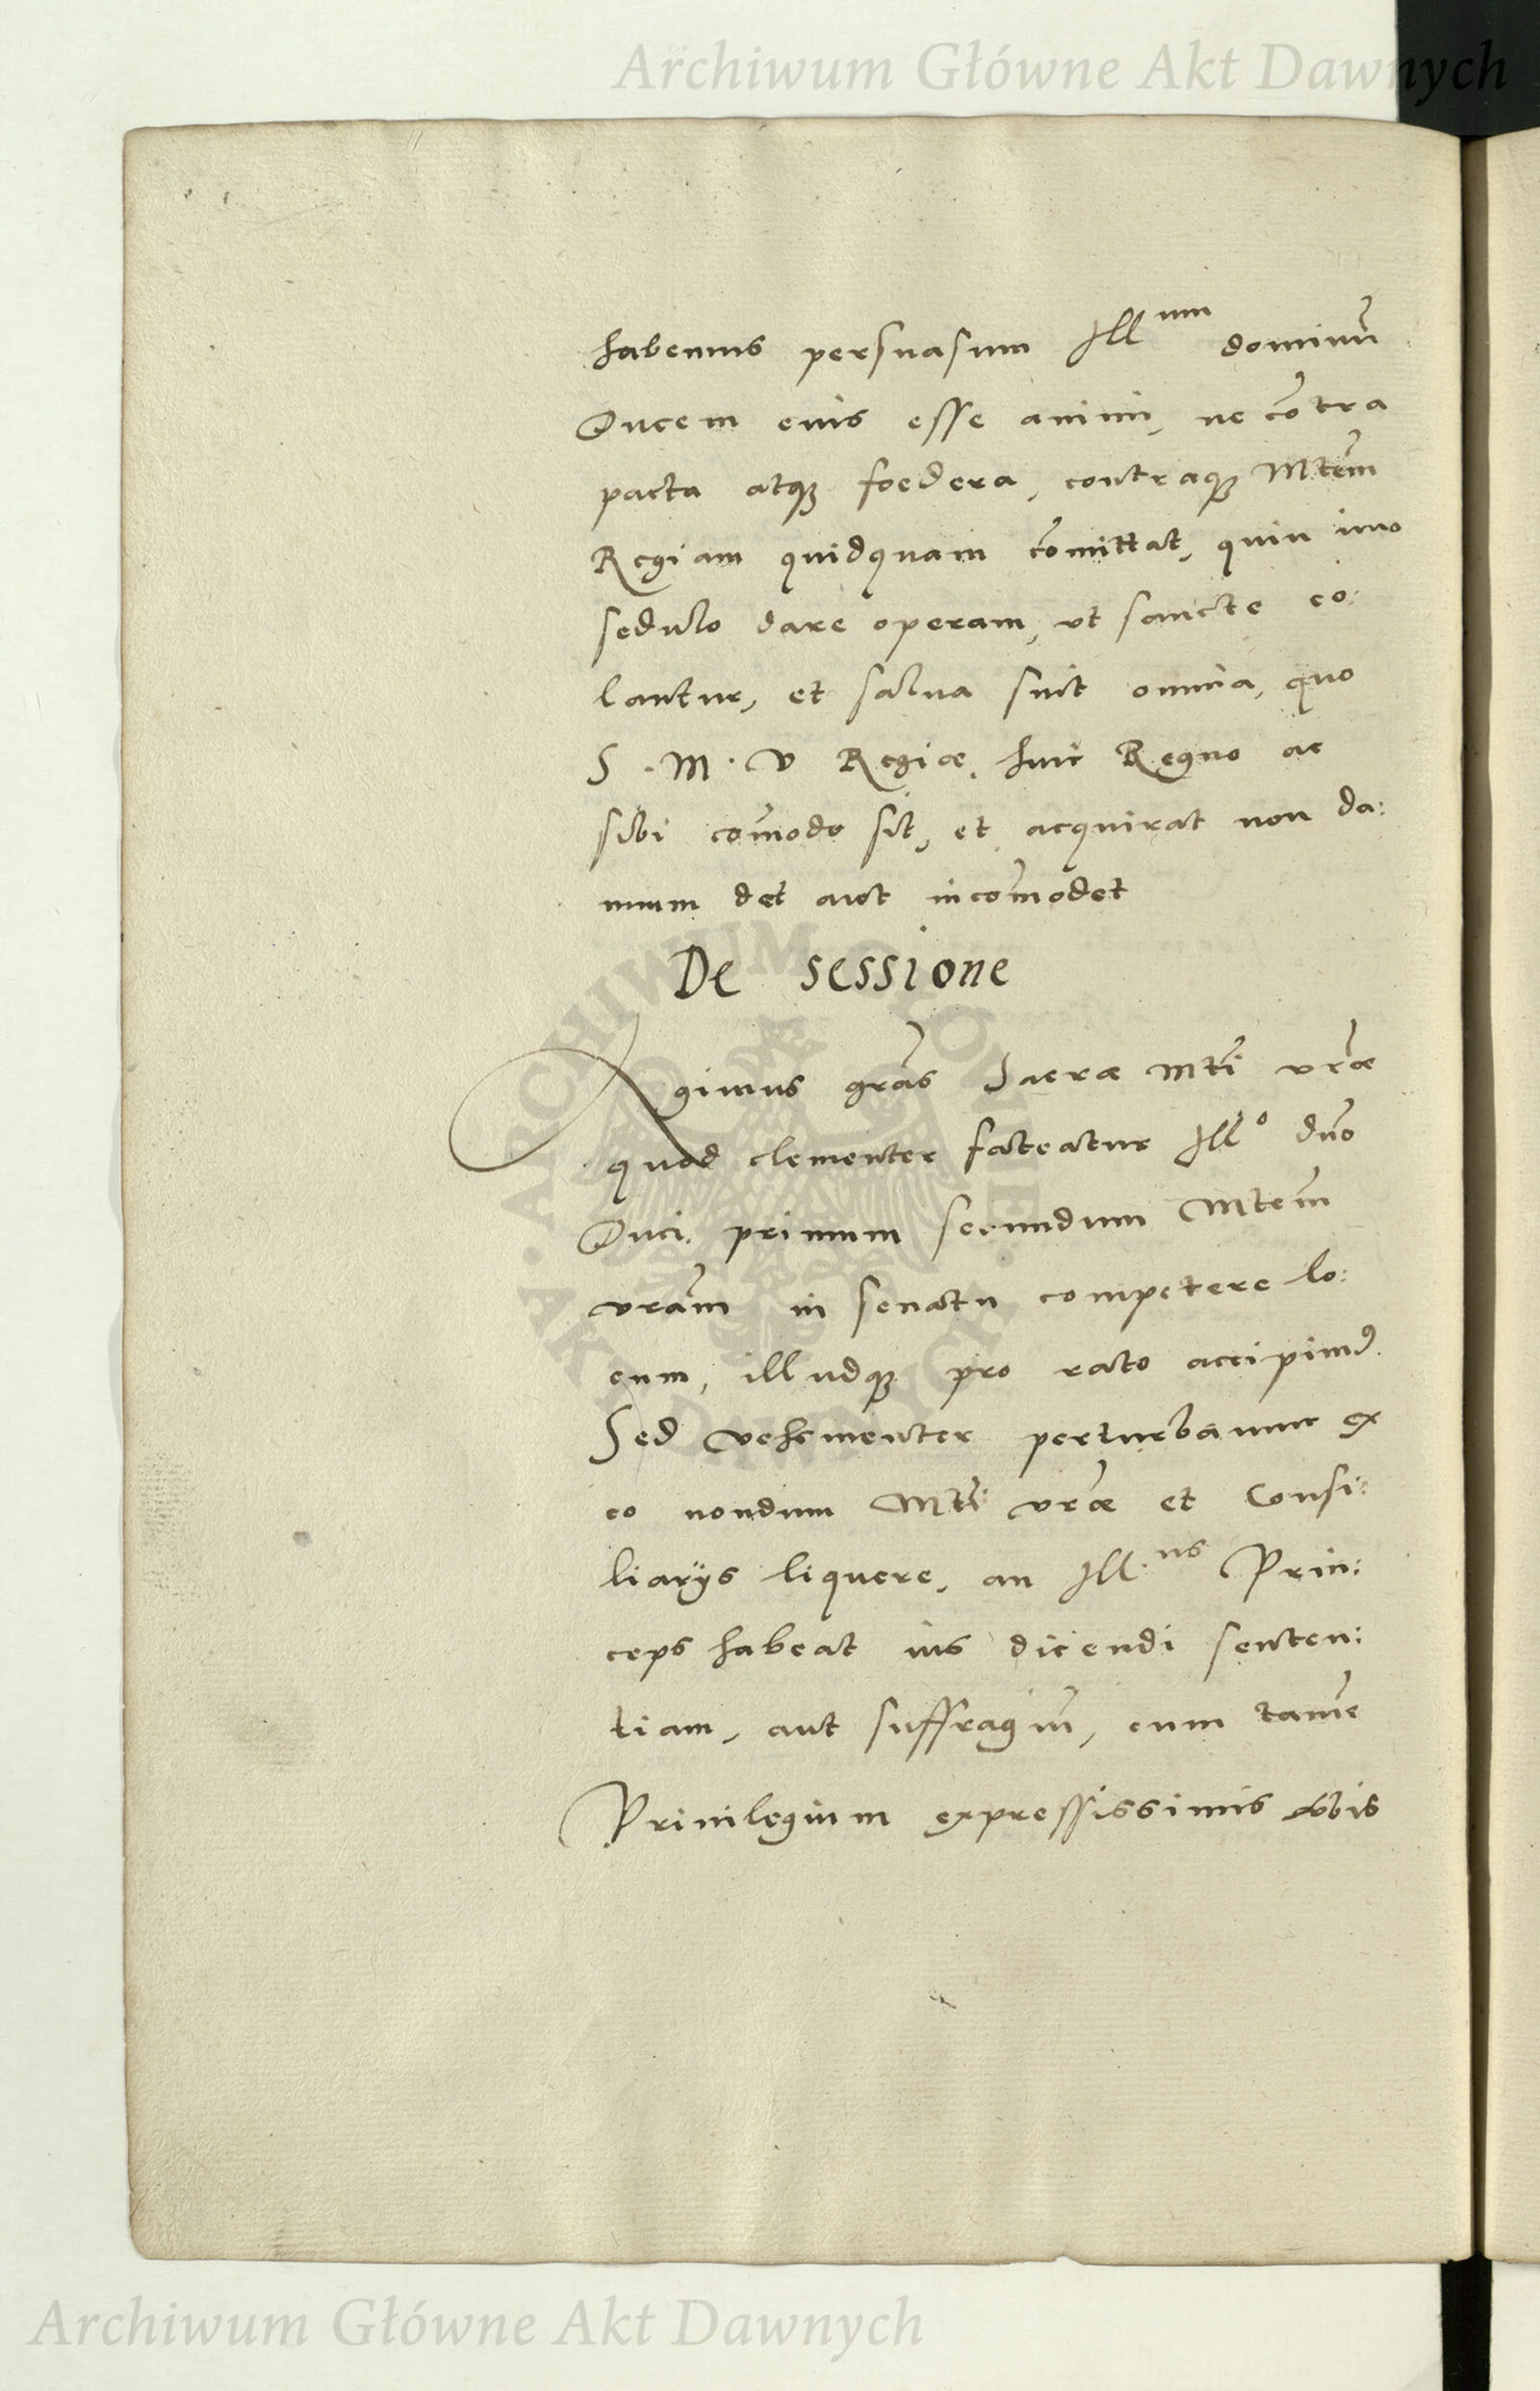 Archiwum Główne Akt Dawnych
habemus persuasum Ill^um dominū
Ducem eius esse animi, ne cōtra
pacta atqꝫ foedera, contraqꝫ Mtēm
Regiam quidquam cōmittat, quin imo
sedulo dare operam, vt sancte co:
lantur, et salua sint omnia, quo
S. M. V Regiæ, huic Regno ac
sibi cōmodo sit, et acquirat non da:
mnum det aut incōmodet
De sessione
Agimus grās Sacræ Mti vræ
quod clementer fateatur Ill^o dno
Duci primum secundum Mtem
vrām in senatu competere lo:
cum, illudqꝫ pro rato accipimꝰ.
Sed vehementer perturbamur ex
eo nondum Mti vræ et Consi:
liarijs liquere, an Ill.^us Prin:
ceps habeat ius dicendi senten:
tiam, aut suffragiū, cum tamē
Priuilegium expressissimis vbis
ARCHIWUM GŁÓWNE AKT DAWNYCH
Archiwum Główne Akt Dawnych